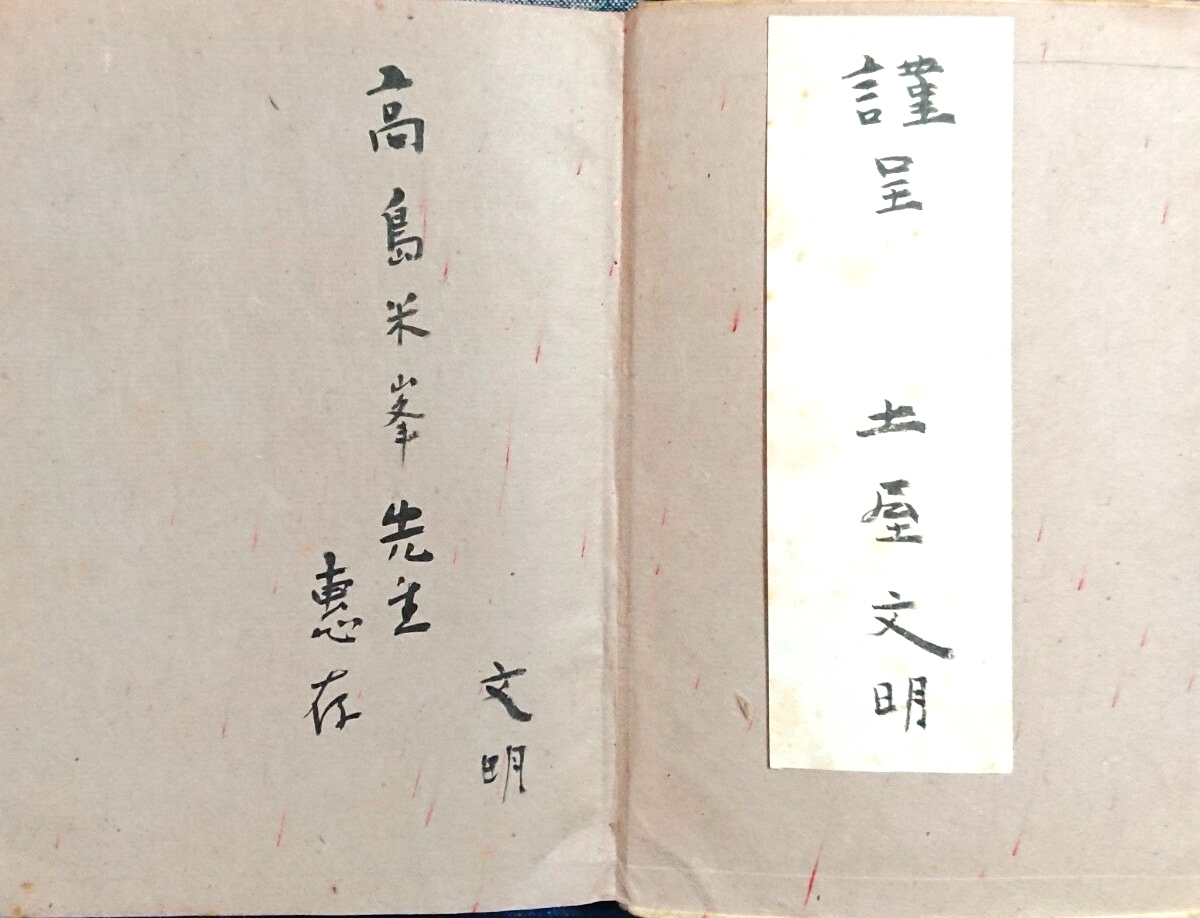 謹呈 土屋文明
文明
高島米峯先生
惠存